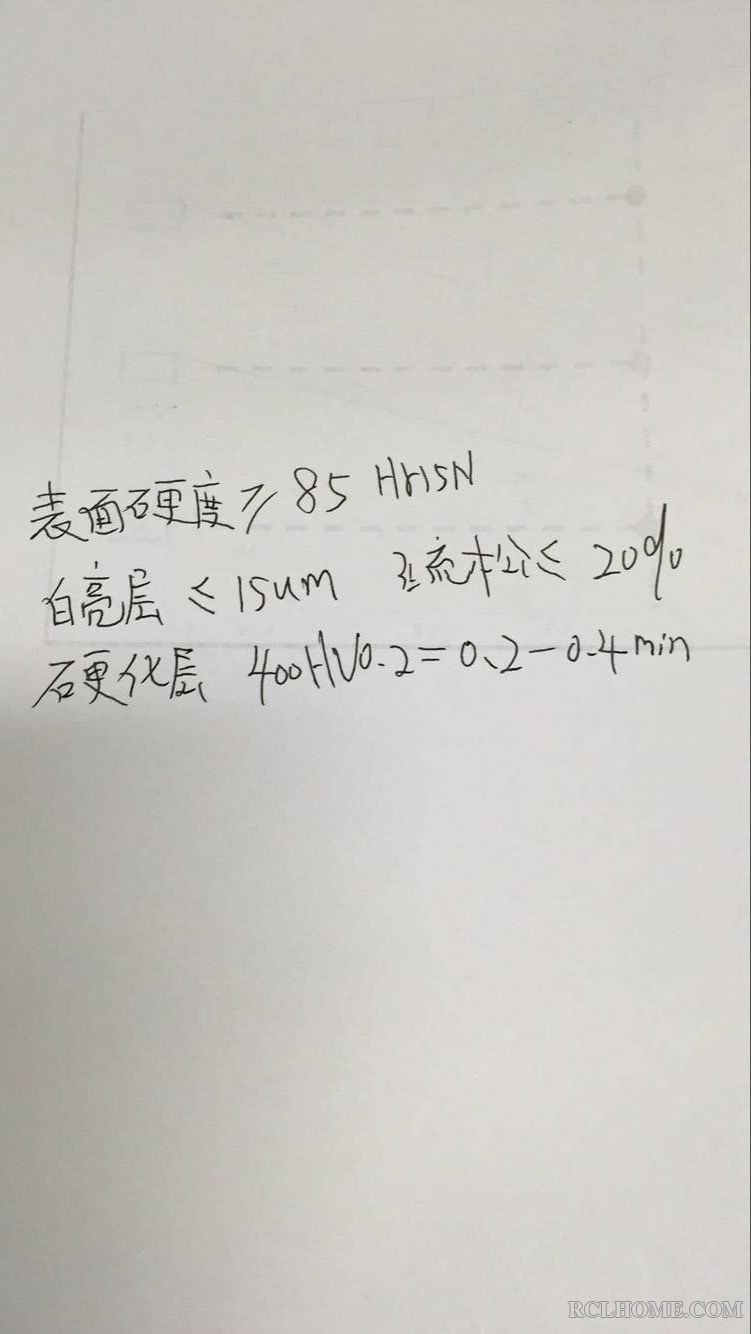 表面硬度≥85 Hr15N
白亮层≤15um 疏松≤20%
硬化层 400HV0.2=0.2-0.4min
RCLHOME.COM